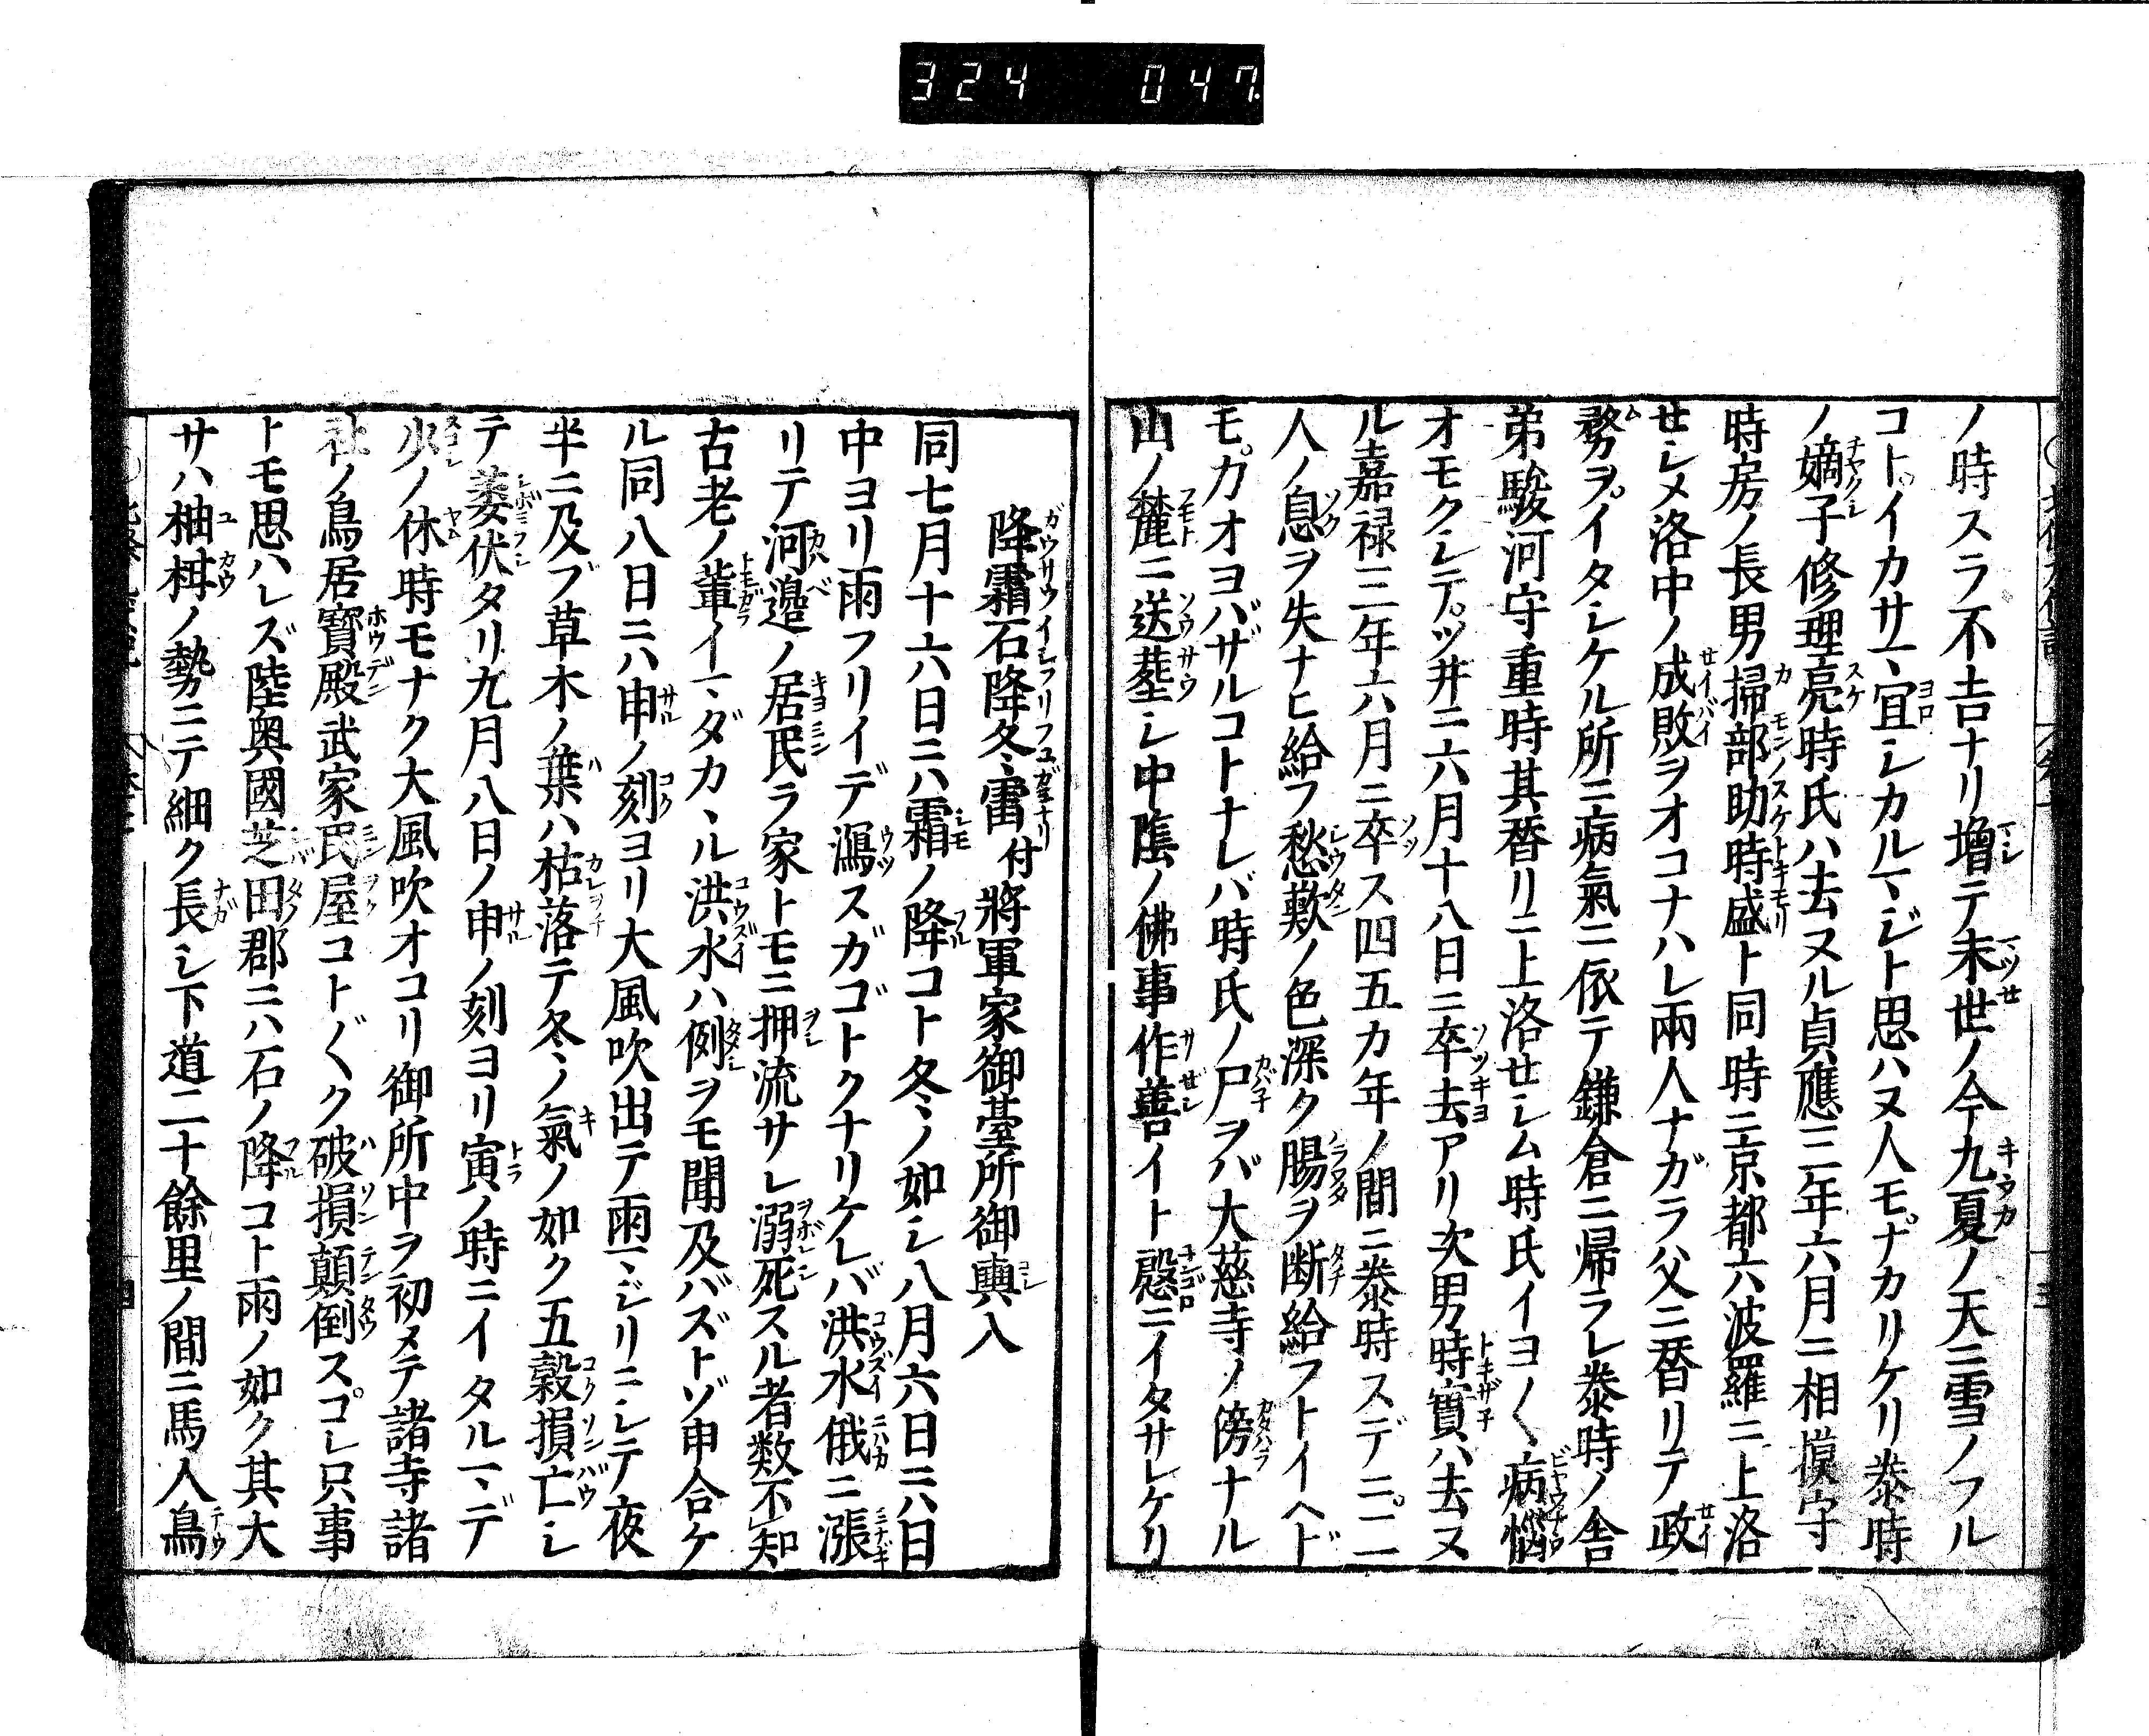 324 047
ノ時スラ不吉ナリ増テ末世ノ今九夏ノ天ニ雪ノフル
コトイカサマ宜シカルマジト思ハヌ人モナカリケリ泰時
ノ嫡子修理亮時氏ハ去ヌル貞應三年六月ニ相摸守
時房ノ長男掃部助時盛ト同時ニ京都六波羅ニ上洛
セシメ洛中ノ成敗ヲオコナハレ兩人ナガラ父ニ替リテ政
務ヲイタシケル所ニ病氣ニ依テ鎌倉ニ帰ラレ泰時ノ舎
弟駿河守重時其替リニ上洛セシム時氏イヨ〱病惱
オモクシテツ井ニ六月十八日ニ卒去アリ次男時實ハ去ヌ
ル嘉禄三年六月ニ卒ス四五カ年ノ間ニ泰時スデニ二
人ノ息ヲ失ナヒ給フ愁歎ノ色深ク腸ヲ断給フトイヘド
モ力オヨバザルコトナレバ時氏ノ尸ヲバ大慈寺ノ傍ナル
山ノ麓ニ送葬シ中陰ノ佛事作善イト慇ニイタサレケリ
降霜石降冬雷付將軍家御臺所御輿入
同七月十六日ニハ霜ノ降コト冬ノ如シ八月六日ニハ日
中ヨリ雨フリイデ瀉スガゴトクナリケレバ洪水俄ニ漲
リテ河邉ノ居民ラ家トモニ押流サレ溺死スル者数不知
古老ノ輩イマダカヽル洪水ハ例ヲモ聞及バズトゾ申合ケ
ル同八日ニハ申ノ刻ヨリ大風吹出テ雨マジリニシテ夜
半ニ及ブ草木ノ葉ハ枯落テ冬ノ氣ノ如ク五穀損亡シ
テ萎伏タリ九月八日ノ申ノ刻ヨリ寅ノ時ニイタルマデ
少ノ休時モナク大風吹オコリ御所中ヲ初メテ諸寺諸
社ノ鳥居寳殿武家民屋コト〲ク破損顛倒スコレ只事
トモ思ハレズ陸奥國芝田郡ニハ石ノ降コト雨ノ如ク其大
サハ柚柑ノ勢ニテ細ク長シ下道二十餘里ノ間ニ馬人鳥